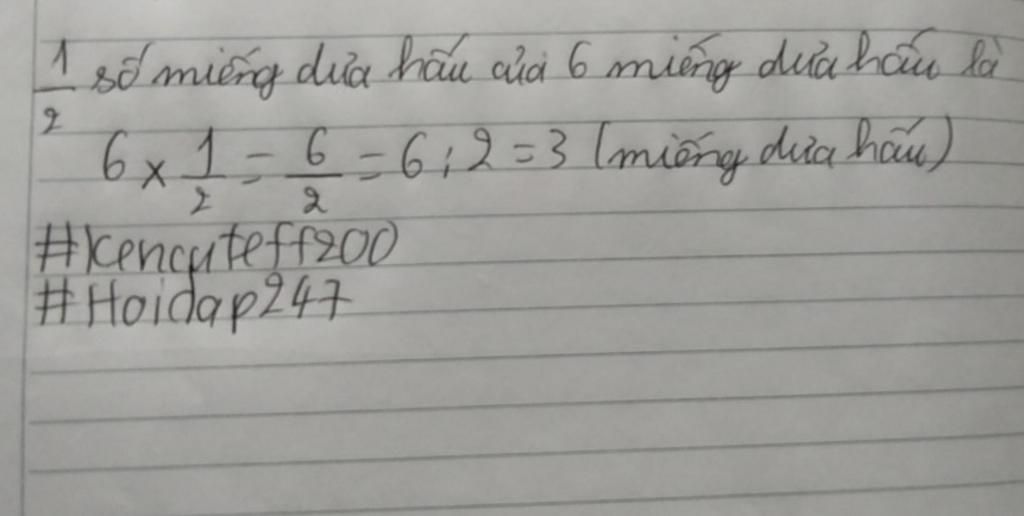 1/2 số miếng dưa hấu của 6 miếng dưa hấu là
6 x 1/2 = 6/2 = 6 : 2 = 3 (miếng dưa hấu)
#kencuteff200
#Hoidap247